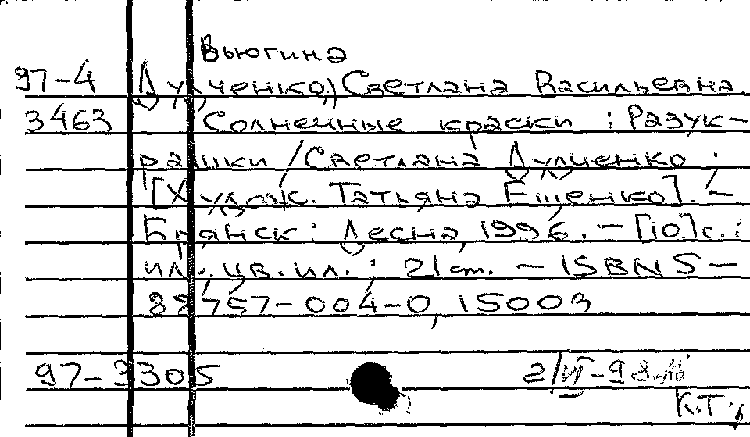 Вьюгина
97-4 Дулченко, Светлана Васильевна.
3463 Солнечные краски : Разук-
рашки / Светлана Дулченко ;
[Худож. Татьяна Ещенко]. –
Брянск : Десна, 1996. – [10] с. :
ил., цв. ил. ; 21 cm. – ISBN 5-
88757-004-0, 15003
97-3305 2/VI-98
К.Т.